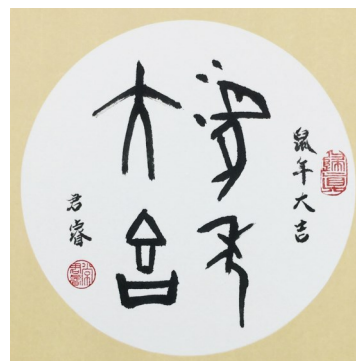 鼠年
大吉
鼠年大吉
君睿